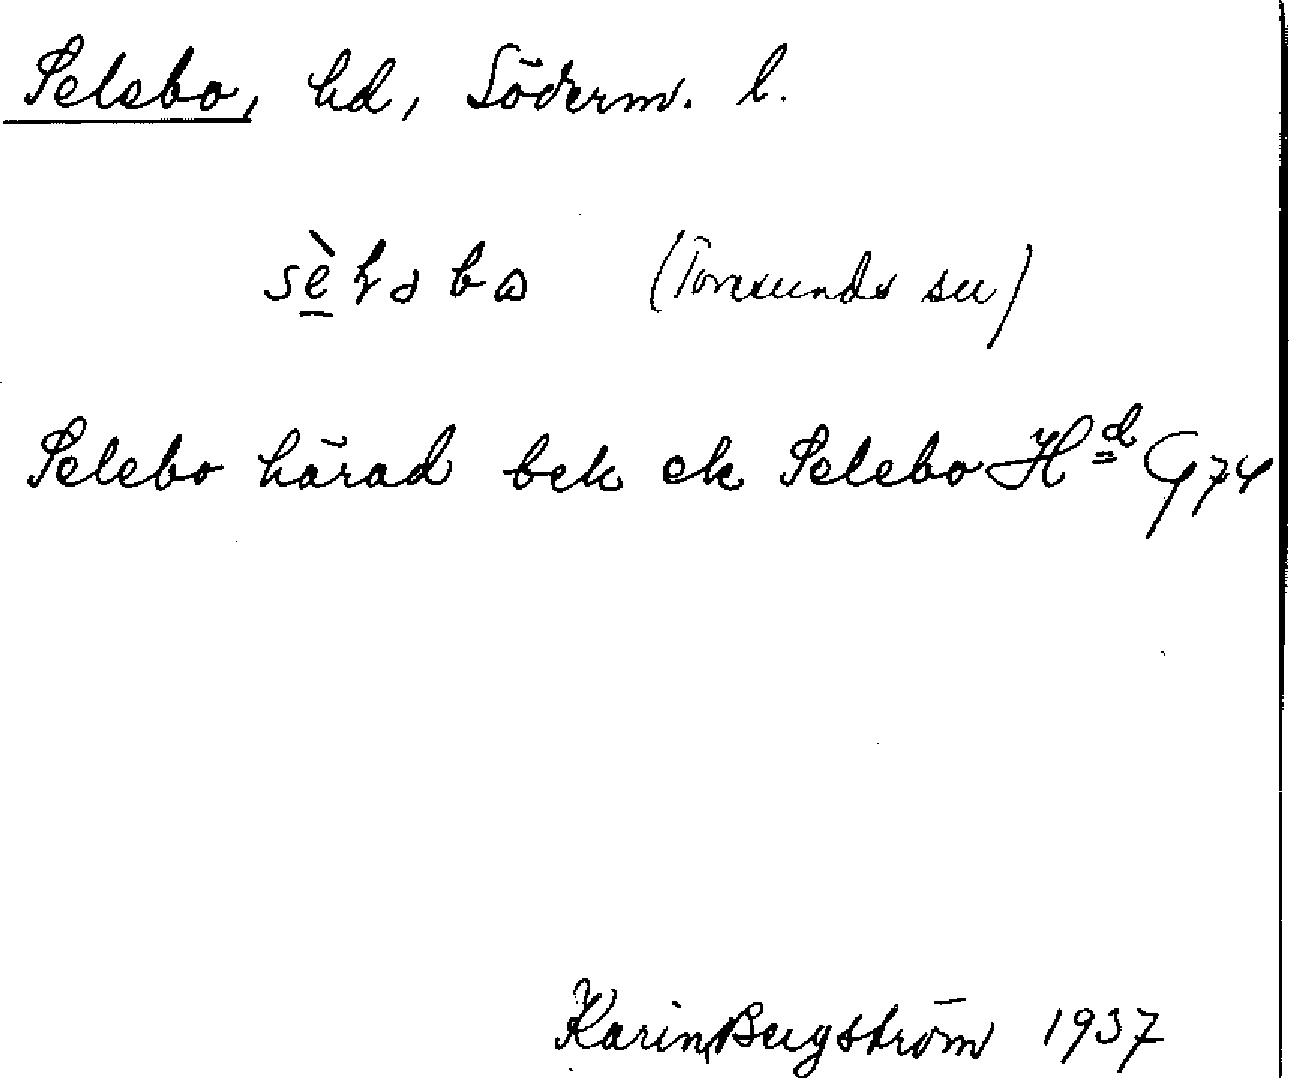 Selebo, hd, Söderm. l.
(Toresunds sn)
Selebo härad bek ek Selebo Hd G74
Karin Bergström 1937